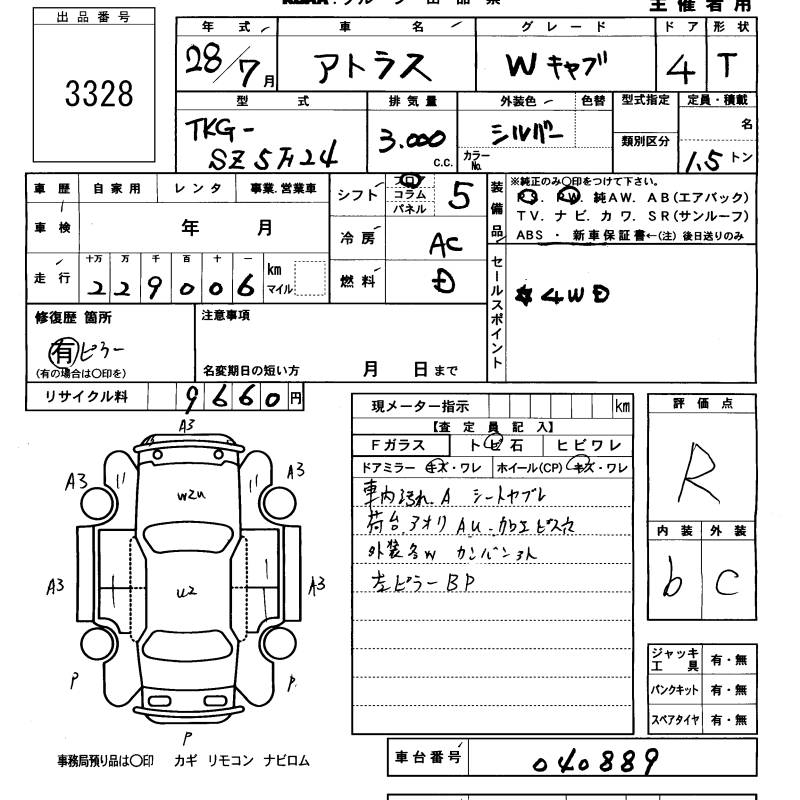 主催者用
出品番号
3328
年式 車名 グレード ドア 形状
28/7月 アトラス Wキャブ 4 T
型式 排気量 外装色 色替 型式指定 定員・積載
TKG-
SZ5F24 3.000 c.c. シルバー カラーNo. 類別区分 名
1.5トン
車歴 自家用 レンタ 事業.営業車
車検 年 月
走行 十万 万 千 百 十 一
229006 km マイル
シフト フロア コラム パネル 5
冷房 AC
燃料 D
装備品
※純正のみ〇印をつけて下さい。
PS. PW. 純AW. AB(エアバック)
TV. ナビ. カワ. SR(サンルーフ)
ABS ・ 新車保証書←(注) 後日送りのみ
セールスポイント
4WD
修復歴 箇所
有 ピラー
(有の場合は〇印を)
注意事項
名変期日の短い方 月 日まで
リサイクル料 9660円
現メーター指示 km
【査定員記入】
Fガラス トビ石 ヒビワレ
ドアミラー キズ・ワレ ホイール(CP) キズ・ワレ
車内汚れ.A シートヤブレ
荷台アオリAU.加工ビス穴
外装各W カンバン3人
左ピラーBP
評価点
R
内装 外装
b C
ジャッキ工具 有・無
パンクキット 有・無
スペアタイヤ 有・無
A3
A3 A3
W2U
A3 A3
U2
P P.
P
事務局預り品は〇印 カギ リモコン ナビロム
車台番号 040889